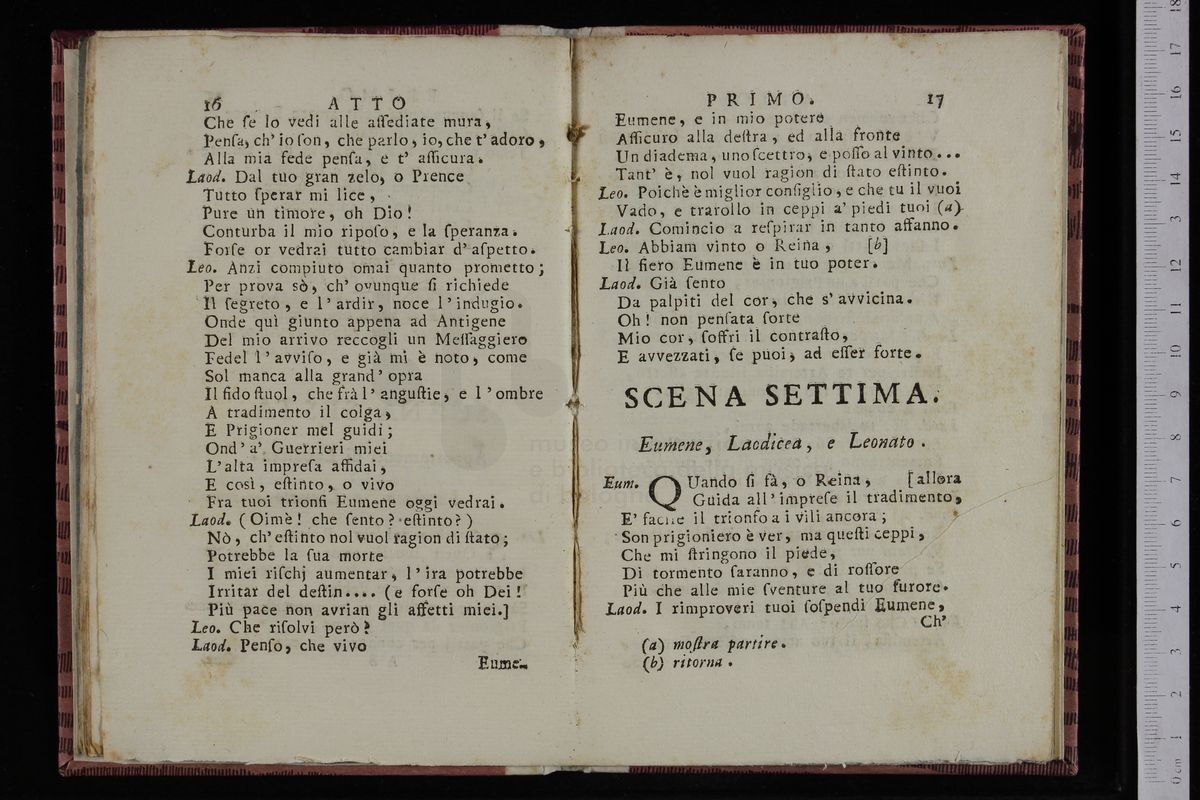 16 ATTO
Che ſe lo vedi alle aſſediate mura,
Penſa, ch' io ſon, che parlo, io, che t' adoro,
Alla mia fede penſa, e t' aſſicura.
Laod. Dal tuo gran zelo, o Prence
Tutto ſperar mi lice,
Pure un timore, oh Dio!
Conturba il mio ripoſo, e la ſperanza.
Forſe or vedrai tutto cambiar d' aſpetto.
Leo. Anzi compiuto omai quanto prometto;
Per prova sò, ch' ovunque ſi richiede
Il ſegreto, e l' ardir, noce l' indugio.
Onde quì giunto appena ad Antigene
Del mio arrivo reccogli un Meſſaggiero
Fedel l' avviſo, e già mi è noto, come
Sol manca alla grand' opra
Il fido ſtuol, che frà l' anguſtie, e l' ombre
A tradimento il colga,
E Prigioner mel guidi;
Ond' a' Guerrieri miei
L'alta impreſa affidai,
E così, eſtinto, o vivo
Fra tuoi trionfi Eumene oggi vedrai.
Laod. (Oimè! che ſento? eſtinto?)
Nò, ch' eſtinto nol vuol ragion di ſtato;
Potrebbe la ſua morte
I miei riſchj aumentar, l' ira potrebbe
Irritar del deſtin.... (e forſe oh Dei!
Più pace non avrian gli affetti miei.]
Leo. Che riſolvi però?
Laod. Penſo, che vivo
Eume-
PRIMO. 17
Eumene, e in mio potere
Aſſicuro alla deſtra, ed alla fronte
Un diadema, uno ſcettro, e poſſo al vinto...
Tant' è, nol vuol ragion di ſtato eſtinto.
Leo. Poichè è miglior conſiglio, e che tu il vuoi
Vado, e trarollo in ceppi a' piedi tuoi (a)
Laod. Comincio a reſpirar in tanto affanno.
Leo. Abbiam vinto o Reina, [b]
Il fiero Eumene è in tuo poter.
Laod. Già ſento
Da palpiti del cor, che s' avvicina.
Oh! non penſata ſorte
Mio cor, ſoffri il contraſto,
E avvezzati, ſe puoi, ad eſſer forte.
SCENA SETTIMA.
Eumene, Laodicea, e Leonato.
Eum. QUando ſi fà, o Reina, [allora
Guida all' impreſe il tradimento,
E' facile il trionfo a i vili ancora;
Son prigioniero è ver, ma queſti ceppi,
Che mi ſtringono il piede,
Di tormento ſaranno, e di roſſore
Più che alle mie ſventure al tuo furore.
Laod. I rimproveri tuoi ſoſpendi Eumene,
Ch'
(a) moſtra partire.
(b) ritorna.